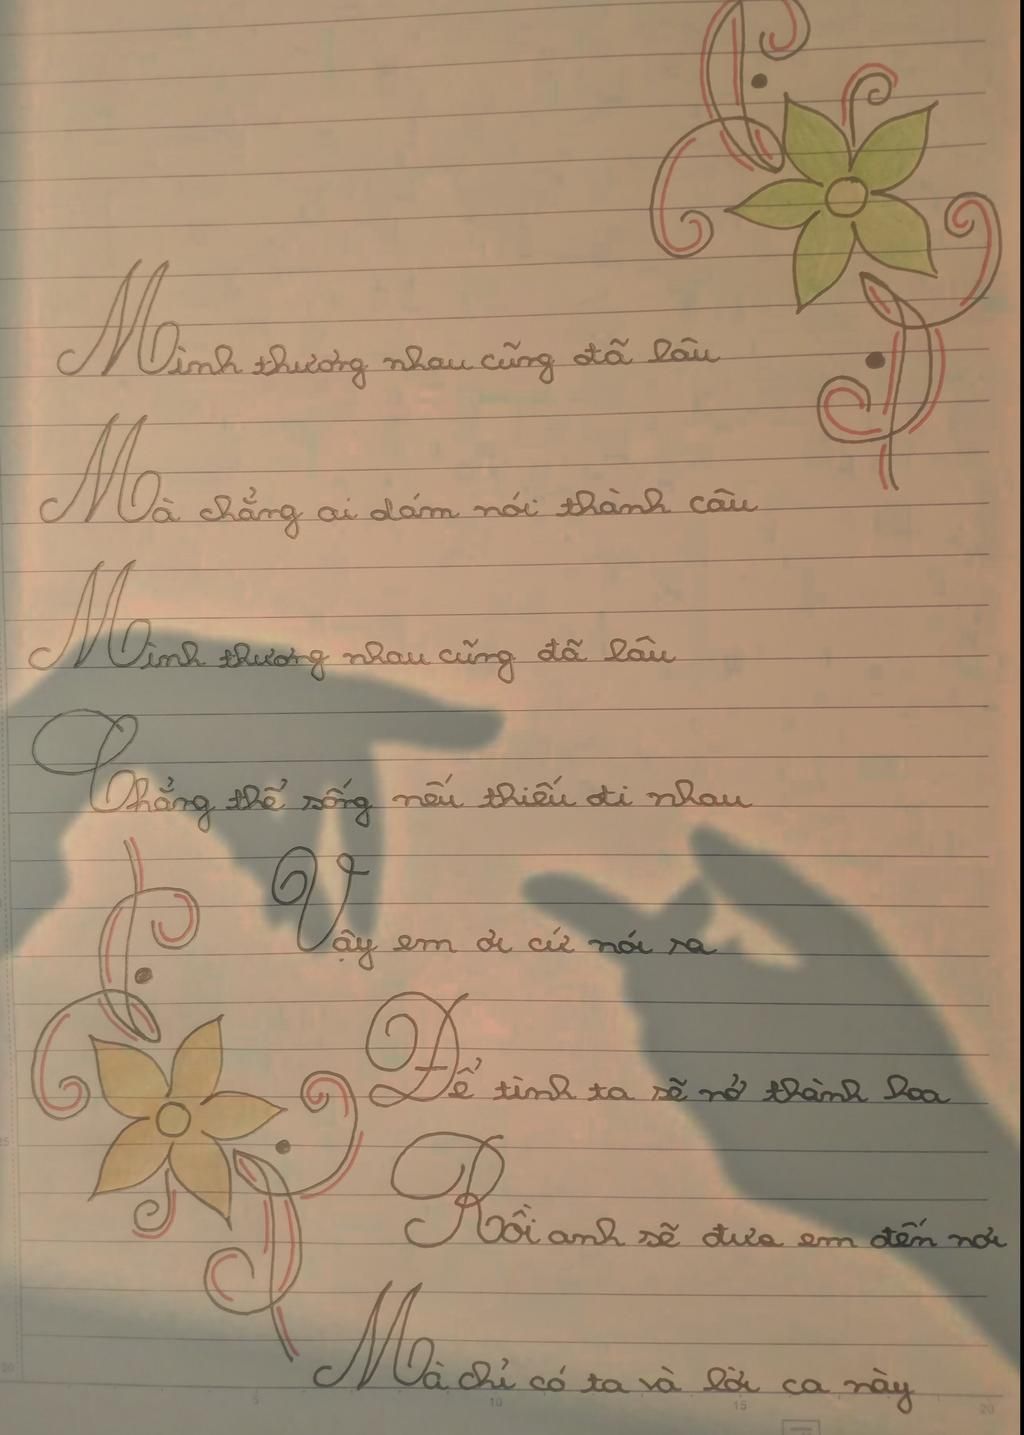 Mình thương nhau cũng đã lâu
Mà chẳng ai dám nói thành câu
Mình thương nhau cũng đã lâu
Chẳng thể sống nếu thiếu đi nhau
Vậy em ơi cứ nói ra
Để tình ta sẽ nở thành hoa
Rồi anh sẽ đưa em đến nơi
Mà chỉ có ta và lời ca này
5 10 15 20